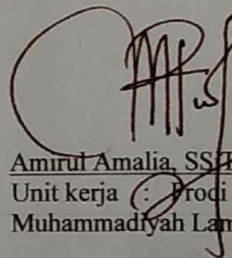 Amirul Amalia, SSiT
Unit kerja : Prodi
Muhammadiyah Lam